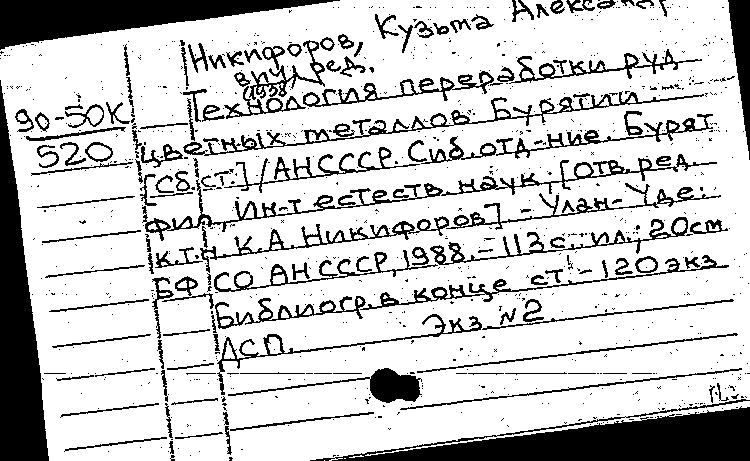 Никифоров, Кузьма Александр
ред.
(1938)
90-50К
520
Технология переработки руд
цветных металлов Бурятии.
[Сб.ст.]/АНСССР. Сиб.отд-ние. Бурят
фил, Ин-т естеств. наук; [Отв. ред.
к.т.н. К.А. Никифоров]. - Улан-Удэ:
БФ СО АН СССР, 1988. - 113с.: ил.; 20см
Библиогр. в конце ст. - 120 экз
ДСП. Экз №2.